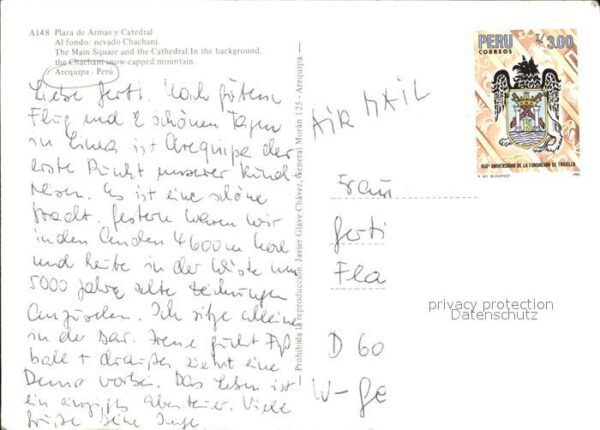 A148 Plaza de Armas y Catedral
Al fondo: nevado Chachani.
The Main Square and the Cathedral.In the background,
the Chachani snow-capped mountain.
Arequipa - Perú
Liebe Gerti. Nach gutem
Flug und 2 schönen Tagen
in Lima ist Arequipa der
erste Punkt unserer Rund
reisen. Es ist eine schöne
Stadt. Gestern waren wir
in den Anden 4600m hoch
und heute in der Wüste um
5000 Jahre alte Zeichnungen
anzusehen. Ich sitze alleine
in der Bar. Irene guckt Fuß
ball + draußen zieht eine
Demo vorbei. Das Leben ist
ein einziges Abenteuer. Viele
Grüße Deine
Prohibida la reproducción Javier Glave Chávez, General Morán 125 - Arequipa
PERU
I/. 3.00
CORREOS
450° ANIVERSARIO DE LA FUNDACION DE TRUJILLO
AIR MAIL
Frau
Gerti
Fla
D 60
W-Ge
privacy protection
Datenschutz